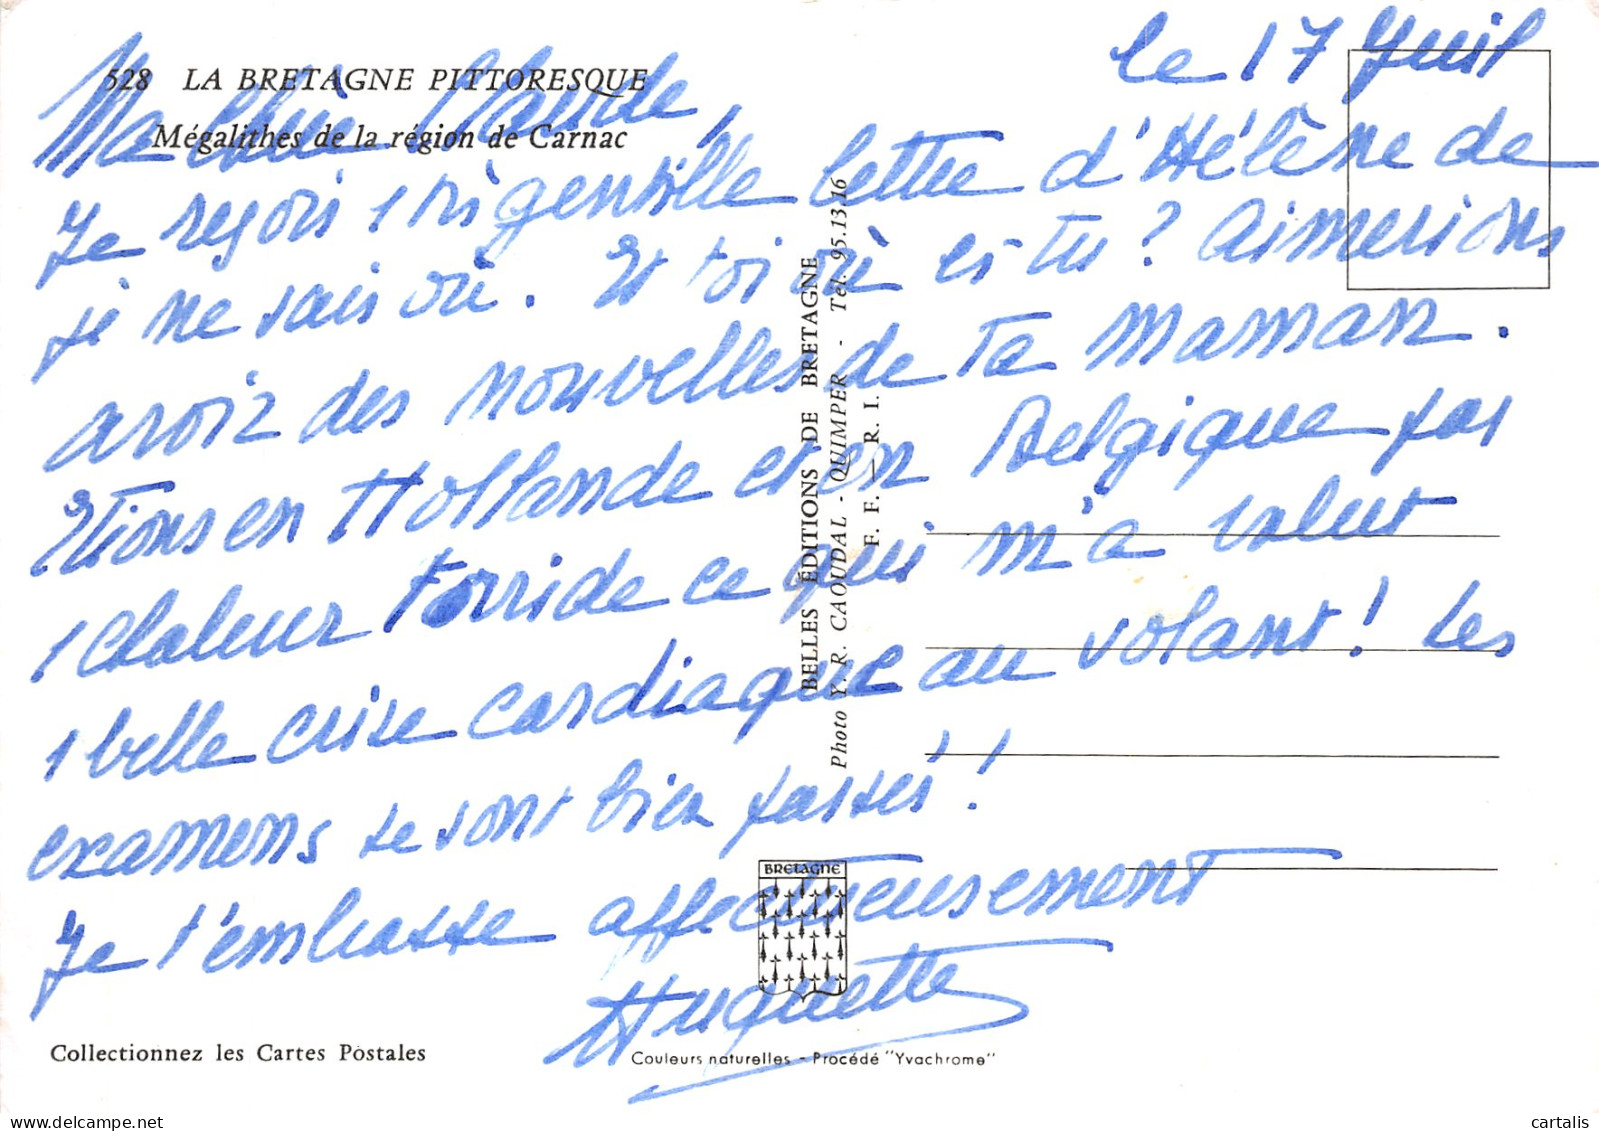 le 17 Juil
528 LA BRETAGNE PITTORESQUE
Mégalithes de la région de Carnac
Ma chère Claude,
Je reçois 1 très gentille lettre d'Hélène de
je ne sais où. Et toi où es-tu ? Aimerions
avoir des nouvelles de ta Maman.
Etions en Hollande et en Belgique par
1 chaleur torride ce qui m'a valut
1 belle crise cardiaque au volant ! Les
examens se sont bien passés !
Je t'embrasse affectueusement
Huguette
BELLES ÉDITIONS DE BRETAGNE
Photo Y. R. CAOUDAL - QUIMPER - Tél. 95.13.16
E. F. — R. I.
BRETAGNE
Collectionnez les Cartes Postales
Couleurs naturelles - Procédé "Yvachrome"
cartalis
delcampe.net